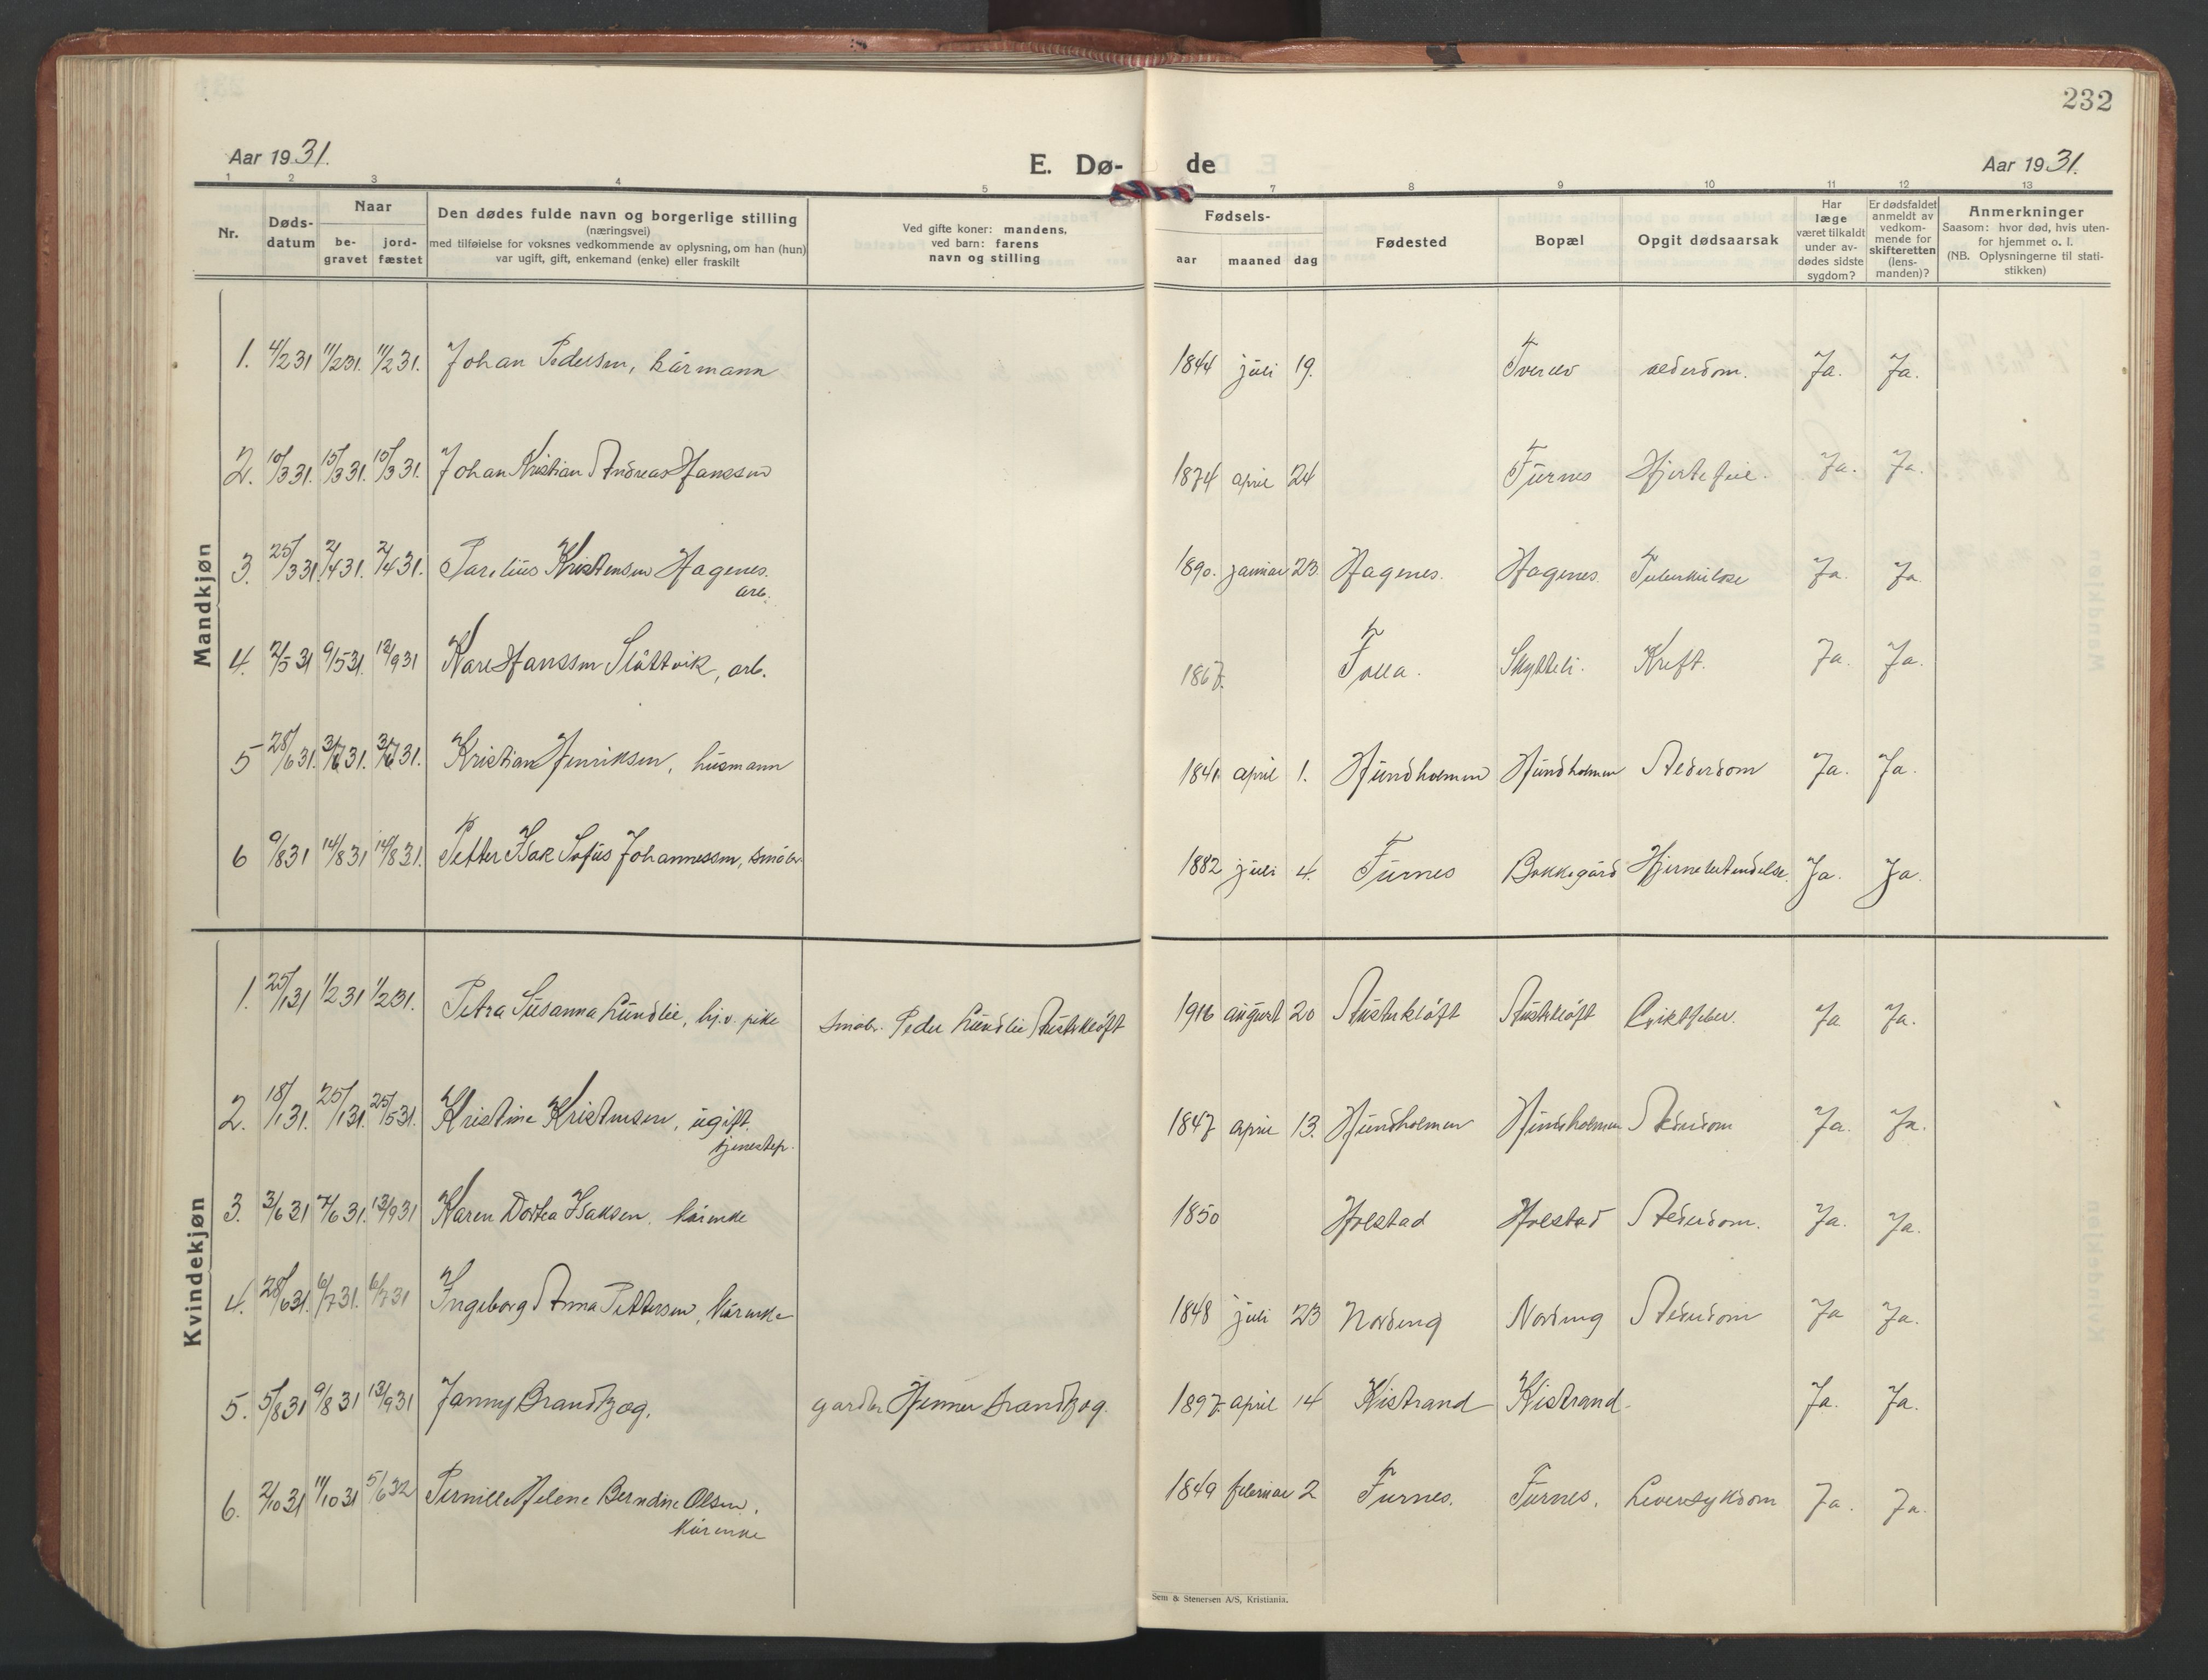 232
Aar 1931.
E. Dø- de
Aar 1931.
1 2 3 4 5 7 8 9 10 11 12 13
Nr.
Døds-
datum
Naar
be-
gravet
jord-
fæstet
Den dødes fulde navn og borgerlige stilling
(næringsvei)
med tilføielse for voksnes vedkommende av oplysning, om han (hun)
var ugift, gift, enkemand (enke) eller fraskilt
Ved gifte koner: mandens,
ved barn: farens
navn og stilling
Fødsels-
aar maaned dag
Fødested
Bopæl
Opgit dødsaarsak
Har
læge
været tilkaldt
under av-
dødes sidste
sygdom?
Er dødsfaldet
anmeldt av
vedkom-
mende for
skifteretten
(lens-
manden)?
Anmerkninger
Saasom: hvor død, hvis uten-
for hjemmet o. l.
(NB. Oplysningerne til stati-
stikken)
Mandkjøn
1. 4/2 31 11/2 31. 11/2 31. Johan Pedersen, kårmann 1844 juli 19. Tverelv alderdom. Ja. Ja.
2. 10/3 31. 15/3 31. 15/3 31. Johan Kristian Andreas Hanssen 1874 april 24 Furnes Hjertefeil. Ja. Ja.
3. 25/3 31. 2/4 31. 2/4 31. Parelius Kristensen Hagenes. 1890. januar 23. Hagenes. Hagenes. Tuberkulose Ja. Ja
arb.
4. 2/5 31 9/5 31. 13/9 31 Karl Hanssen Slåttvik, arb. 1867. Folla. Skytteli. Kreft. Ja. Ja.
5 28/6 31. 31. 31. Kristian Henriksen, husmann 1841 april 1. Hundholmen Hundholmen Alderdom Ja. Ja.
6 9/8 31 14/8 31 14/8 31. Petter Isak Sofus Johannessen, småbr. 1882 juli 4. Furnes Bakkegård Hjernebetendelse. Ja. Ja.
Kvindekjøn
1. 25/1 31 1/2 31 1/2 31. Petra Susanna Lundlie, hj.v. pike småbr. Peder Lundlie Austerkløft 1916 august 20 Austerkløft Austerkløft Giktfeber. Ja Ja.
2. 18/1 31. 25/1 31. 25/5 31. Kristine Kristensen, ugift. 1847 april 13. Hundholmen Hundholmen Alderdom Ja. Ja.
tjenestep.
3. 3/6 31 7/6 31. 13/9 31 Karen Dortea Isaksen, kårenke 1850 Holstad Holstad Alderdom. Ja. Ja.
4. 28/6 31. 6/7 31. 6/7 31 Ingeborg Anna Pettersen, kårenke 1848 juli 23 Nordeng Nordeng Alderdom Ja Ja.
5. 5/8 31 9/8 31 13/9 31 Janny Brandtzæg. gardbr. Henner Brandtzæg. 1897. april 14 Kistrand Kistrand. Ja. Ja.
6. 2/10 31 11/10 31 5/6 32 Pernille Helene Berndine Olsen, 1849 februar 2 Furnes. Furnes. Leversykdom Ja. Ja.
kårenke
Sem & Stenersen A/S, Kristiania.